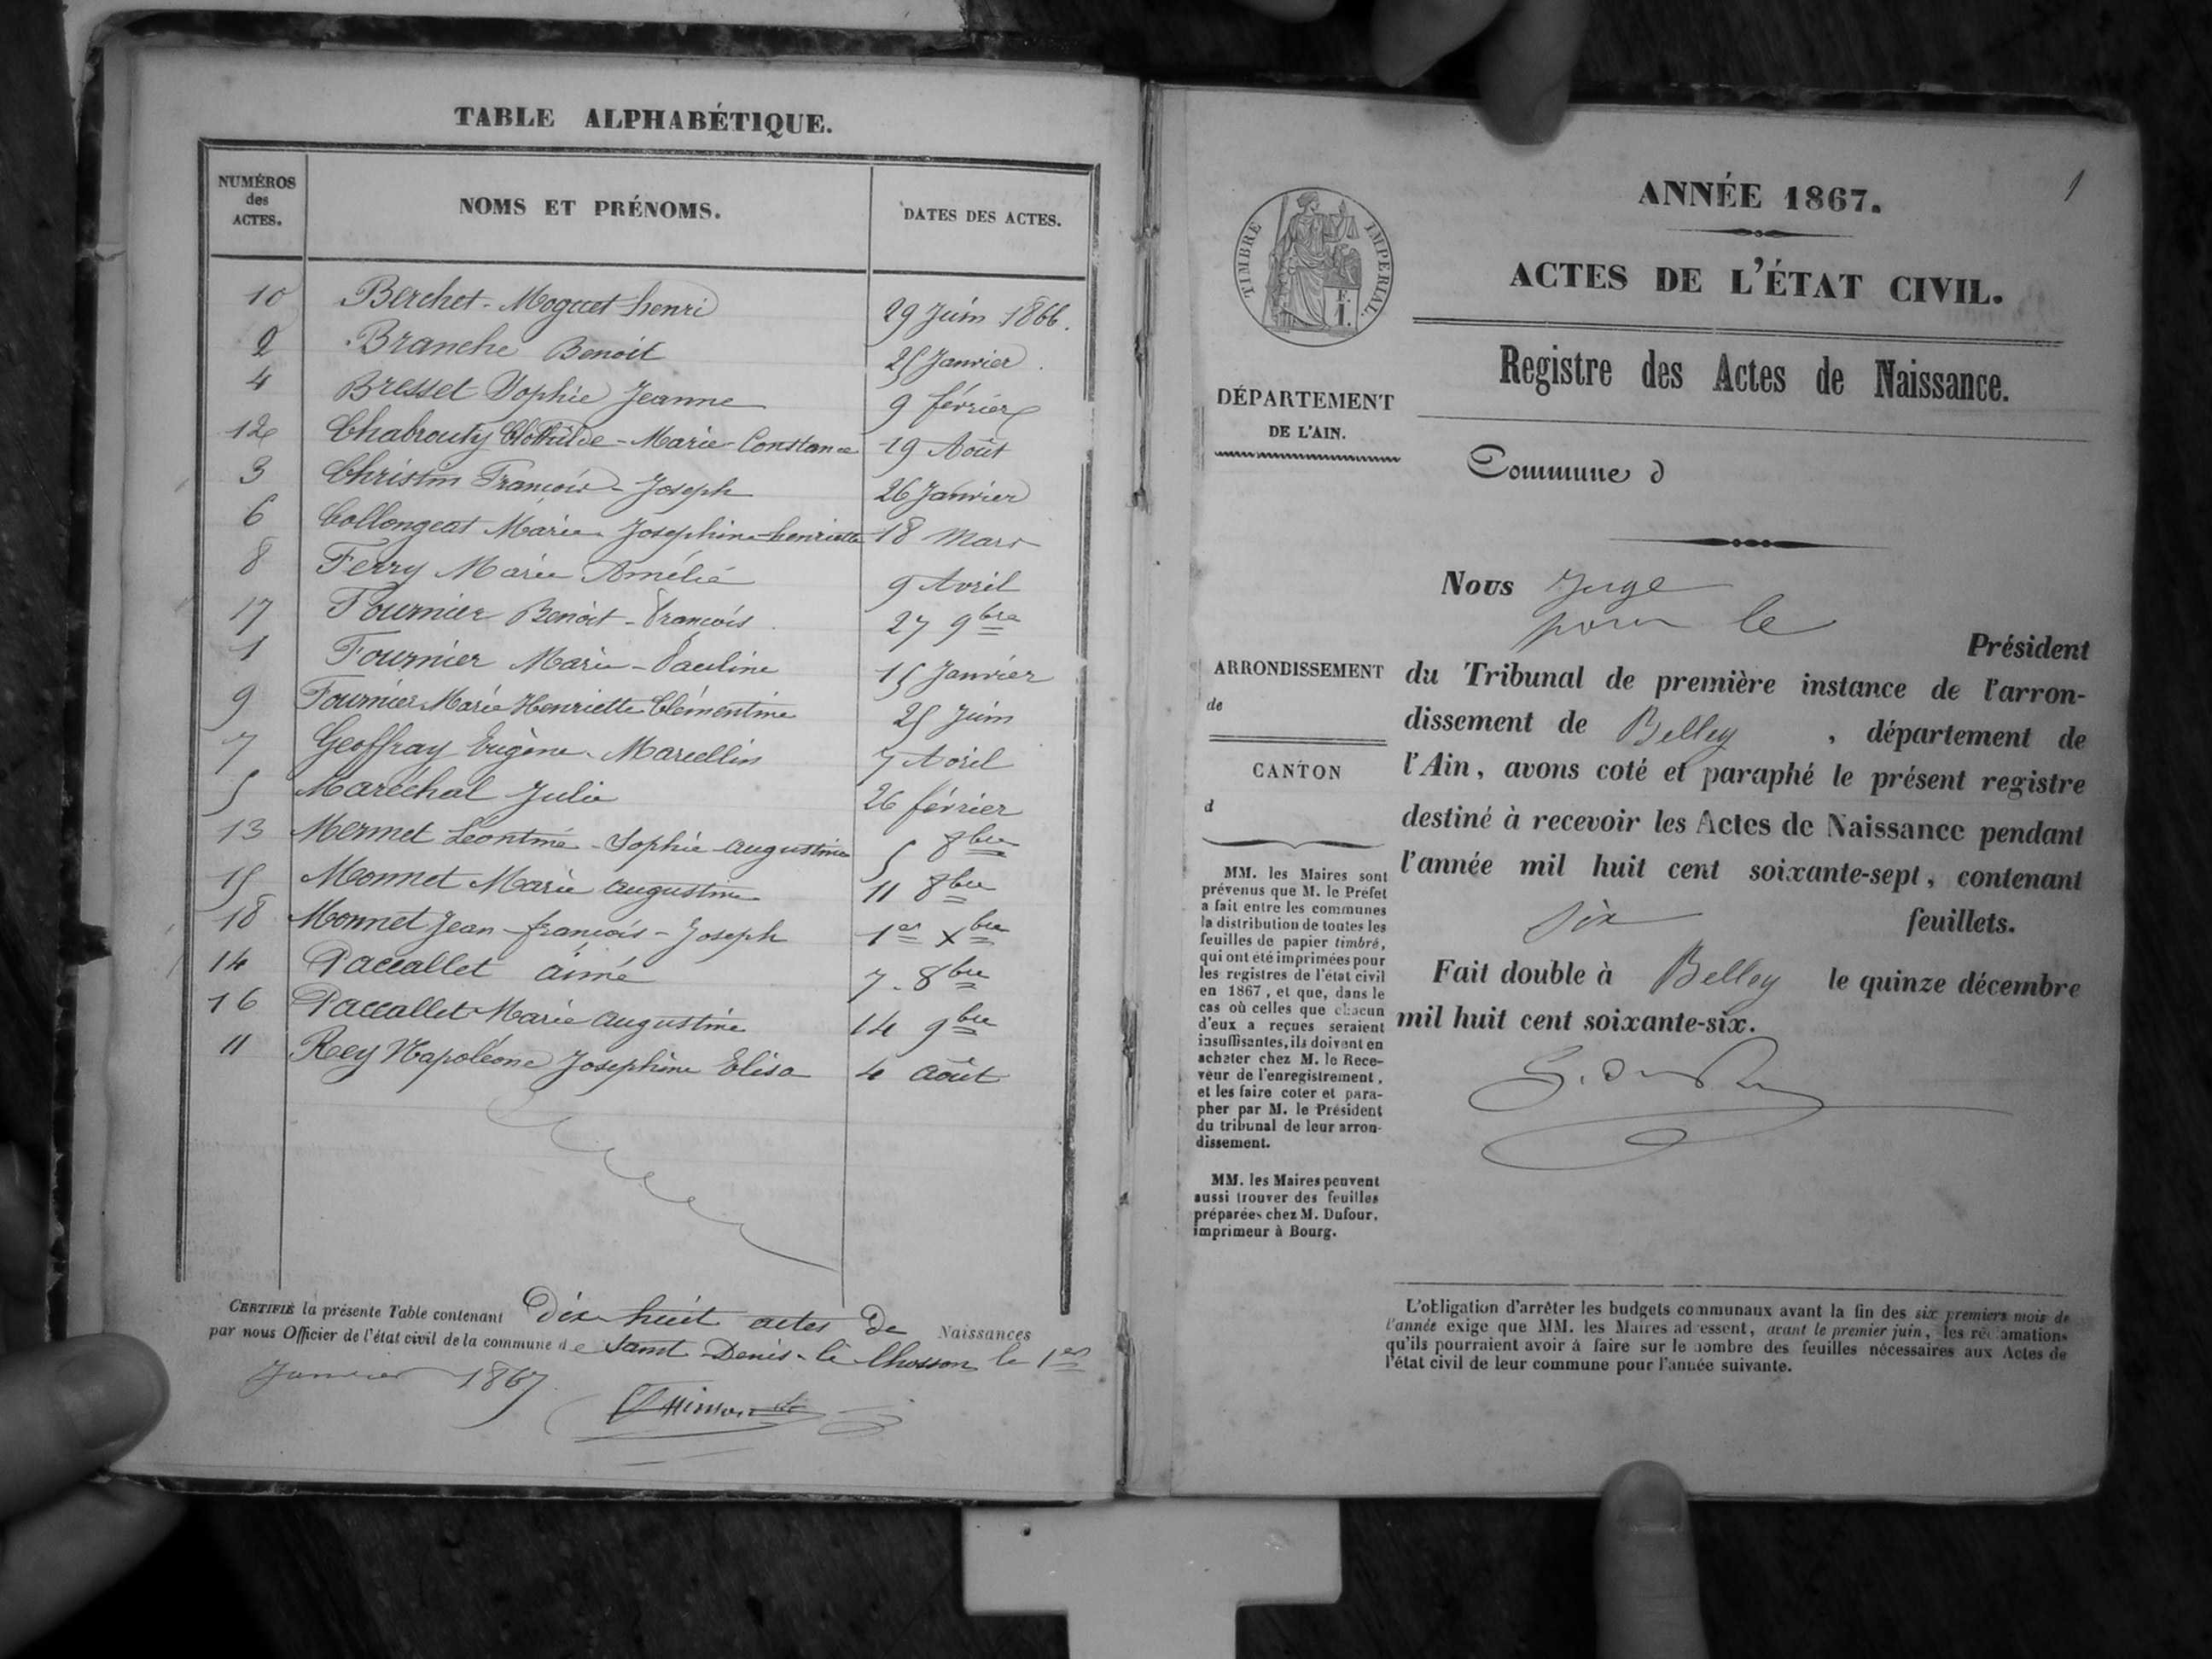 TABLE ALPHABÉTIQUE.
NUMÉROS des ACTES.
NOMS ET PRÉNOMS.
DATES DES ACTES.
10 Berchet-Moguet henri 29 Juin 1866.
2 Branche Benoit 25 Janvier.
4 Bresset Sophie Jeanne 9 février
12 Chabrouty Clothilde-Marie-Constance 19 Août
3 Christin François-Joseph 26 Janvier
6 Collongeat Marie Josephine henriette 18 Mars
8 Ferry Marie Amélie 9 Avril
17 Fournier Benoit-François. 27 9bre
1 Fournier Marie-Pauline 15 Janvier
9 Fournier Marie Henriette Clémentine 25 Juin
7 Geoffray Eugène-Marcellin 7 Avril
5 Maréchal Julie 26 février
13 Mermet Léontine-Sophie-augustine 5 8bre
15 Monnet Marie augustine 11 8bre
18 Monnet Jean-françois-Joseph 1er Xbre
14 Paccallet aimé 7-8bre
16 Paccallet Marie augustine 14 9bre
11 Rey Napoléone Josephine Elisa 4 août
CERTIFIÉ la présente Table contenant Dix huit actes de Naissances
par nous Officier de l'état civil de la commune de Saint Denis-le Chosson le 1er
Janvier 1867
1
ANNÉE 1867.
ACTES DE L'ÉTAT CIVIL.
TIMBRE IMPERIAL.
F.
1.
Registre des Actes de Naissance.
DÉPARTEMENT
DE L'AIN.
Commune d
Nous Juge
pour le
Président
ARRONDISSEMENT
de
du Tribunal de première instance de l'arron-
dissement de Belley, département de
l'Ain, avons coté et paraphé le présent registre
destiné à recevoir les Actes de Naissance pendant
l'année mil huit cent soixante-sept, contenant
six feuillets.
CANTON
d
Fait double à Belley le quinze décembre
mil huit cent soixante-six.
MM. les Maires sont
prévenus que M. le Préfet
a fait entre les communes
la distribution de toutes les
feuilles de papier timbré,
qui ont été imprimées pour
les registres de l'état civil
en 1867, et que, dans le
cas où celles que chacun
d'eux a reçues seraient
insuffisantes, ils doivent en
acheter chez M. le Rece-
veur de l'enregistrement,
et les faire coter et para-
pher par M. le Président
du tribunal de leur arron-
dissement.
MM. les Maires peuvent
aussi trouver des feuilles
préparées chez M. Dufour,
imprimeur à Bourg.
L'obligation d'arrêter les budgets communaux avant la fin des six premiers mois de
l'année exige que MM. les Maires adressent, avant le premier juin, les réclamations
qu'ils pourraient avoir à faire sur le nombre des feuilles nécessaires aux Actes de
l'état civil de leur commune pour l'année suivante.